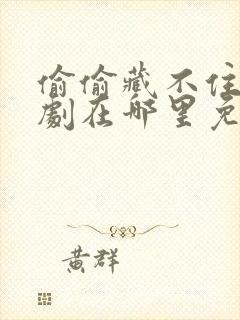 偷偷藏不住
劇在哪里免
黄群